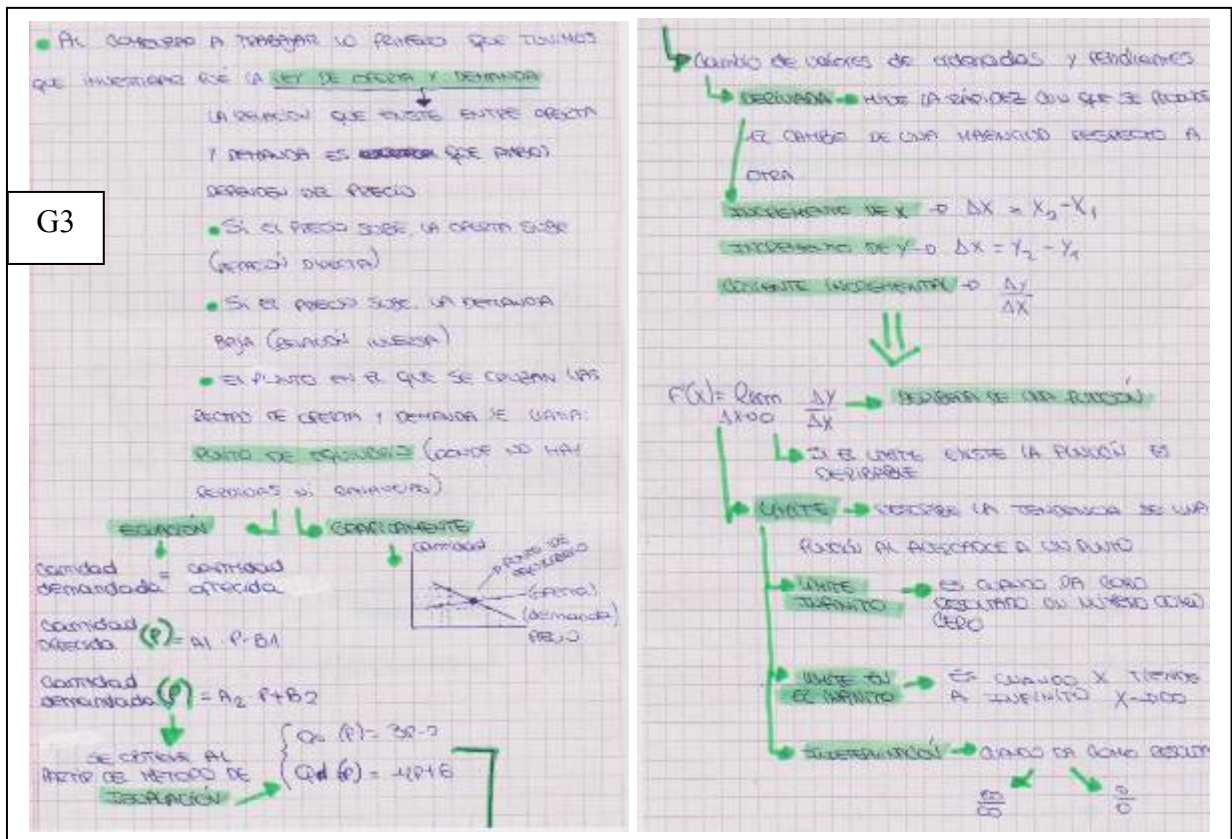 • AL COMENZAR A TRABAJAR LO PRIMERO QUE TUVIMOS
QUE INVESTIGAR FUÉ LA LEY DE OFERTA Y DEMANDA
LA RELACIÓN QUE EXISTE ENTRE OFERTA
Y DEMANDA ES QUE AMBOS
DEPENDEN DEL PRECIO
G3
• Si EL PRECIO SUBE, LA OFERTA SUBE
(RELACIÓN DIRECTA)
• Si EL PRECIO SUBE, LA DEMANDA
BAJA (RELACIÓN INVERSA)
• El PUNTO EN EL QUE SE CRUZAN LAS
RECTAS DE OFERTA Y DEMANDA SE LLAMA:
PUNTO DE EQUILIBRIO (DONDE NO HAY
PERDIDAS NI GANANCIAS)
ECUACIÓN
GRAFICAMENTE
cantidad demandada = cantidad ofrecida
cantidad
PUNTO DE EQUILIBRIO
(OFERTA)
(demanda)
PRECIO
cantidad ofrecida (P) = A1 · P - B1
cantidad demandada (P) = A2 · P + B2
SE OBTIENE AL
PARTIR DEL METODO DE
IGUALACIÓN
(P) = 3P-
Qd (P) = -4P+6
Cambio de valores de ordenadas y pendientes
DERIVADA → MIDE LA RÁPIDEZ CON QUE SE PRODUCE
EL CAMBIO DE UNA MAGNITUD RESPECTO A
OTRA
INCREMENTO DE X → ΔX = X2 - X1
INCREMENTO DE Y → ΔX = Y2 - Y1
COCIENTE INCREMENTAL → Δy/ΔX
F'(X) = lim ΔX→0 ΔY/ΔX → DERIBADA DE UNA FUNCIÓN
SI EL LIMITE EXISTE LA FUNCIÓN ES
DERIBABLE
LIMITE → DESCRIBE LA TENDENCIA DE UNA
FUNCIÓN AL ACERCARCE A UN PUNTO
LIMITE INFINITO → ES CUANDO DA COMO
RESULTADO UN NÚMERO SOBRE
CERO
LIMITE EN EL INFINITO → ES CUANDO X TIENDE
A INFINITO X→∞
INDETERMINACIÓN → CUANDO DA COMO RESULT
∞/∞ 0/0